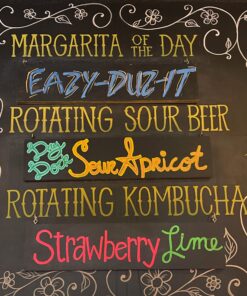 MARGARITA OF THE DAY
EAZY-DUZ-IT
ROTATING SOUR BEER
Dry Dock Sour Apricot
ROTATING KOMBUCHA
Strawberry Lime